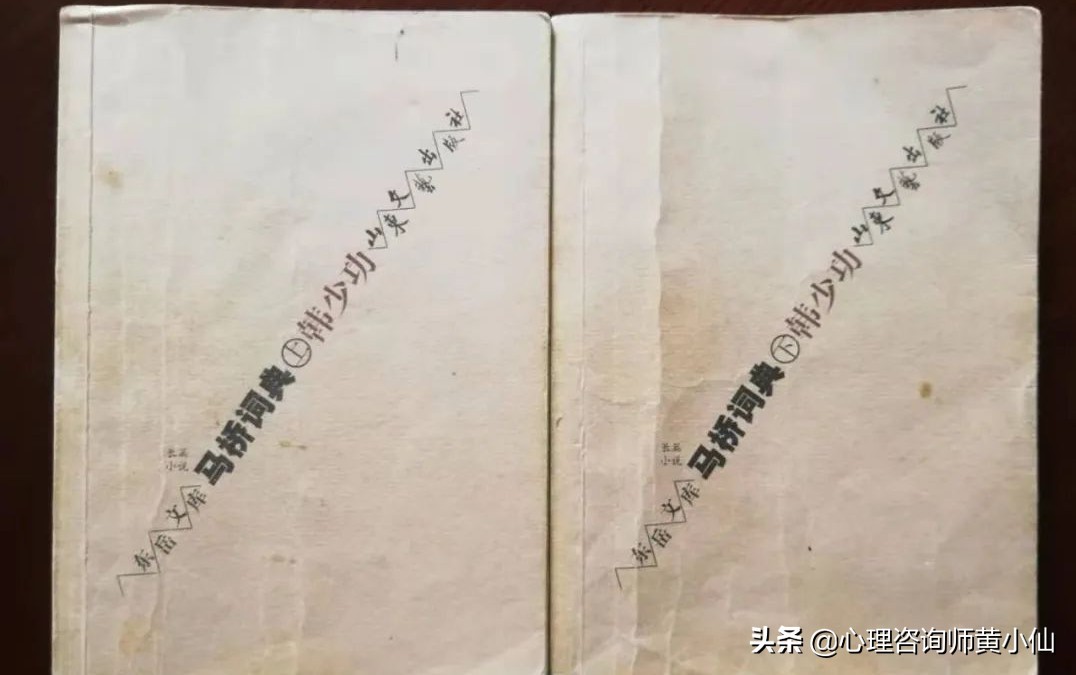 东岳文库
长篇
小说
马桥词典上韩少功
山东文艺出版社
东岳文库
长篇
小说
马桥词典下韩少功
山东文艺出版社
头条 @心理咨询师黄小仙